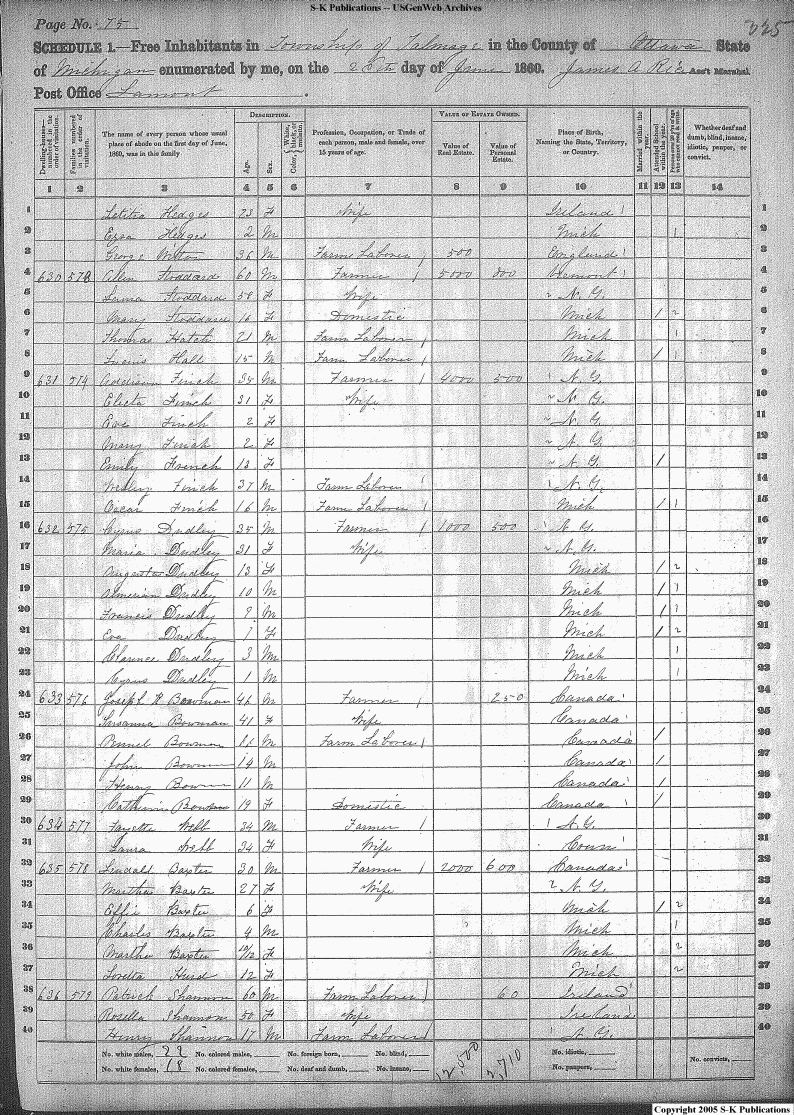 S-K Publications -- USGenWeb Archives
Page No. 75
325
SCHEDULE 1.—Free Inhabitants in Township of Talmage in the County of Ottawa State
of Michigan enumerated by me, on the day of June 1860. James A Ass't Marshal
Post Office Lamont.
DESCRIPTION.
VALUE OF ESTATE OWNED.
Dwelling-houses— numbered in the order of visitation.
Families numbered in the order of visitation.
The name of every person whose usual place of abode on the first day of June, 1860, was in this family
Age.
Sex.
Color, White, black, or mulatto
Profession, Occupation, or Trade of each person, male and female, over 15 years of age.
Value of Real Estate.
Value of Personal Estate.
Place of Birth, Naming the State, Territory, or Country.
Married within the year.
Attended School within the year.
Whether deaf and dumb, blind, insane, idiotic, pauper, or convict.
1 2 3 4 5 6 7 8 9 10 11 12 13 14
1 Letitia Hedges 23 F Wife Ireland 1
2 Ezra Hedges 2 M Mich 2
3 George Wilton 36 M Farm Laborer 500 England 3
4 630 573 Allen Stoddard 60 M Farmer 5000 800 Vermont 4
5 Stoddard 58 F Wife N.Y. 5
6 Mary Stoddard 16 F Domestic Mich 1 2 6
7 Thomas Hatch 21 M Farm Laborer Mich 7
8 Hall 15 M Farm Laborer Mich 1 8
9 631 574 Addison Finch 34 M Farmer 4000 500 N.Y. 9
10 Electa Finch 31 F Wife N.Y. 10
11 Eva Finch 2 F N.Y. 11
12 Mary Finch 2 F N.Y. 12
13 Emily French 13 F N.Y. 1 13
14 Finch 37 M Farm Laborer N.Y. 14
15 Oscar Finch 16 M Farm Laborer Mich 1 1 15
16 632 575 Cyrus Dudley 35 M Farmer 1000 500 N.Y. 16
17 Maria Dudley 31 F Wife N.Y. 17
18 Augusta Dudley 13 F Mich 1 2 18
19 Almerian Dudley 10 M Mich 1 1 19
20 Francis Dudley 9 M Mich 1 1 20
21 Eva Dudley 7 F Mich 1 2 21
22 Clarence Dudley 3 M Mich 1 22
23 Cyrus Dudley 1 M Mich 1 23
24 633 576 Joseph R Bowman 46 M Farmer 250 Canada 24
25 Susanna Bowman 41 F Wife Canada 25
26 Bowman 16 M Farm Laborer Canada 1 26
27 John Bowman 14 M Canada 1 27
28 Henry Bowman 11 M Canada 1 28
29 Catherin Bowman 19 F Domestic Canada 1 29
30 634 577 Fayette Webb 34 M Farmer N.Y. 30
31 Laura Webb 34 F Wife Conn 31
32 635 578 Lendall Baxter 30 M Farmer 2000 600 Canada 32
33 Martha Baxter 27 F Wife N.Y. 33
34 Effie Baxter 6 F Mich 1 2 34
35 Charles Baxter 4 M Mich 1 35
36 Martha Baxter 10/12 F Mich 2 36
37 Loretta Hurd 12 F Mich 2 37
38 636 579 Patrick Shannon 60 M Farm Laborer 60 Ireland 38
39 Rosella Shannon 50 F Wife Ireland 39
40 Henry Shannon 17 M Farm Laborer N.Y. 40
No. white males, 22 No. colored males, No. foreign born, No. blind, 12,500 2,710 No. idiotic, No. convicts,
No. white females, 18 No. colored females, No. deaf and dumb, No. insane, No. paupers,
Copyright 2005 S-K Publications